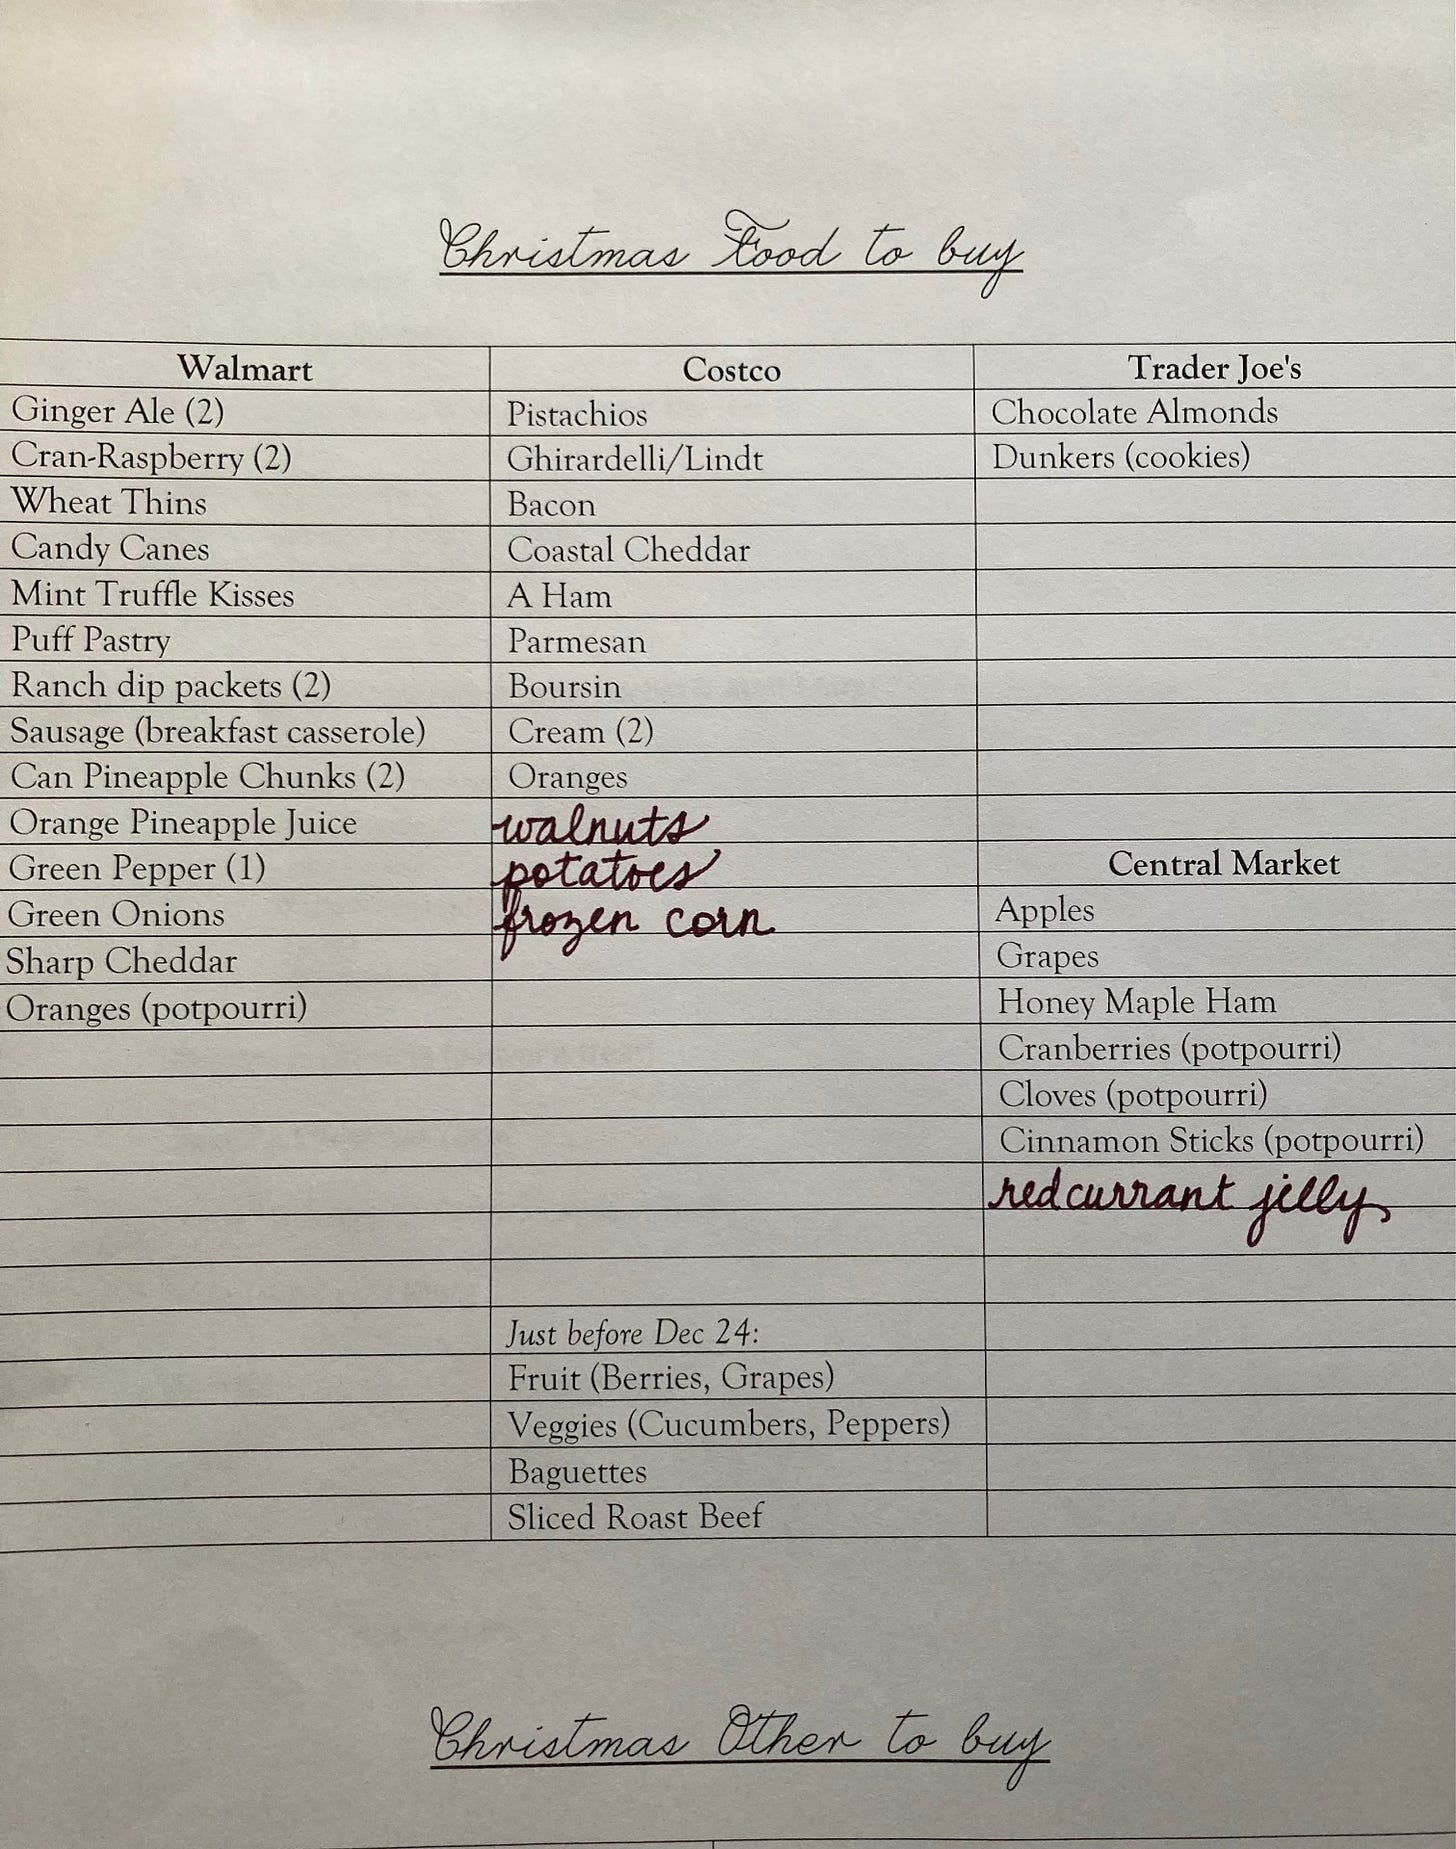 Christmas Food to buy
Walmart
Ginger Ale (2)
Cran-Raspberry (2)
Wheat Thins
Candy Canes
Mint Truffle Kisses
Puff Pastry
Ranch dip packets (2)
Sausage (breakfast casserole)
Can Pineapple Chunks (2)
Orange Pineapple Juice
Green Pepper (1)
Green Onions
Sharp Cheddar
Oranges (potpourri)
Costco
Pistachios
Ghirardelli/Lindt
Bacon
Coastal Cheddar
A Ham
Parmesan
Boursin
Cream (2)
Oranges
walnuts
potatoes
frozen corn
Just before Dec 24:
Fruit (Berries, Grapes)
Veggies (Cucumbers, Peppers)
Baguettes
Sliced Roast Beef
Trader Joe's
Chocolate Almonds
Dunkers (cookies)
Central Market
Apples
Grapes
Honey Maple Ham
Cranberries (potpourri)
Cloves (potpourri)
Cinnamon Sticks (potpourri)
red currant jelly
Christmas Other to buy